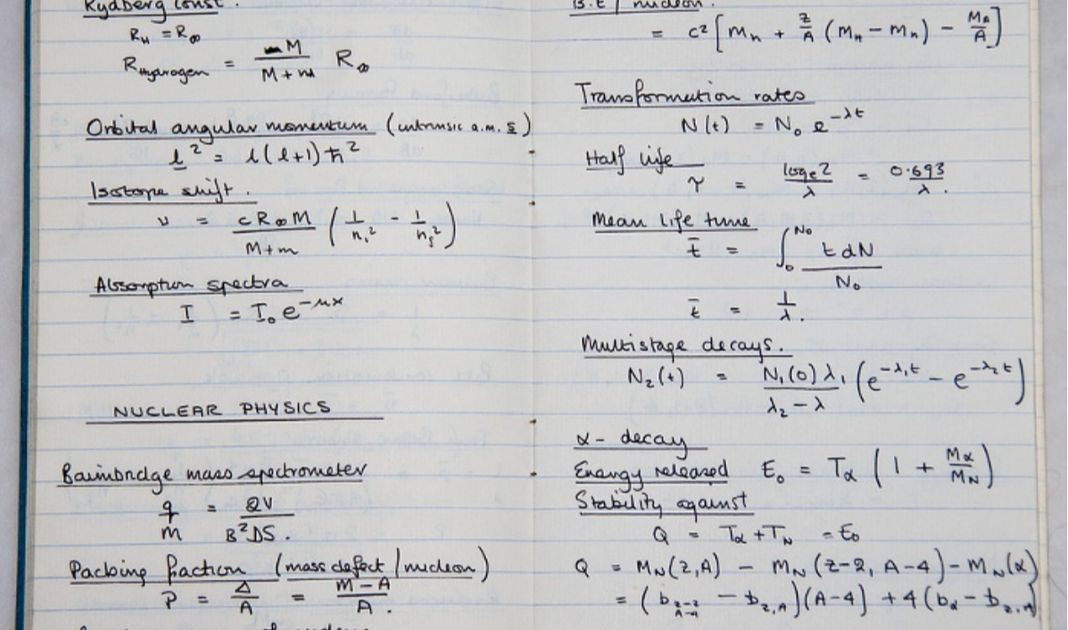 Rydberg const.
R_H = R∞
R_Hydrogen = M/(M+m) R∞
Orbital angular momentum (intrinsic a.m. s)
l² = l(l+1)ħ²
Isotope shift.
ν = cR∞M/(M+m) (1/n_i² - 1/n_f²)
Absorption spectra
I = I₀e^(-μx)
NUCLEAR PHYSICS
Bainbridge mass spectrometer
q/m = 2V/(B²DS).
Packing fraction (mass defect/nucleon)
P = Δ/A = (M-A)/A.
B.E / nucleon.
= c²[m_n + Z/A (m_H - m_n) - M_A/A]
Transformation rates
N(t) = N₀ e^(-λt)
Half life
τ = log_e 2/λ = 0.693/λ.
Mean life time
t̄ = ∫₀^N₀ t dN/N₀
t̄ = 1/λ.
Multistage decays.
N₂(t) = N₁(0)λ₁/(λ₂-λ) (e^(-λ₁t) - e^(-λ₂t))
α- decay
Energy released E₀ = Tα (1 + Mα/M_N)
Stability against
Q = Tα + T_N = E₀
Q = M_N(Z,A) - M_N(Z-2, A-4) - M_N(α)
= (b_(Z-2, A-4) - b_(Z,A))(A-4) + 4(bα - b_(Z,A))